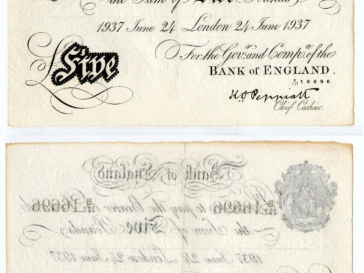 the Sum of Five Pounds
1937 June 24 London 24 June 1937
For the Gov.r and Comp.a of the
BANK OF ENGLAND.
16696
K.O. Peppiatt
Chief Cashier.
Five
Bank of England
16696 to pay the Bearer 16696
the Sum of Five Pounds
1937 June 24 London 24 June 1937